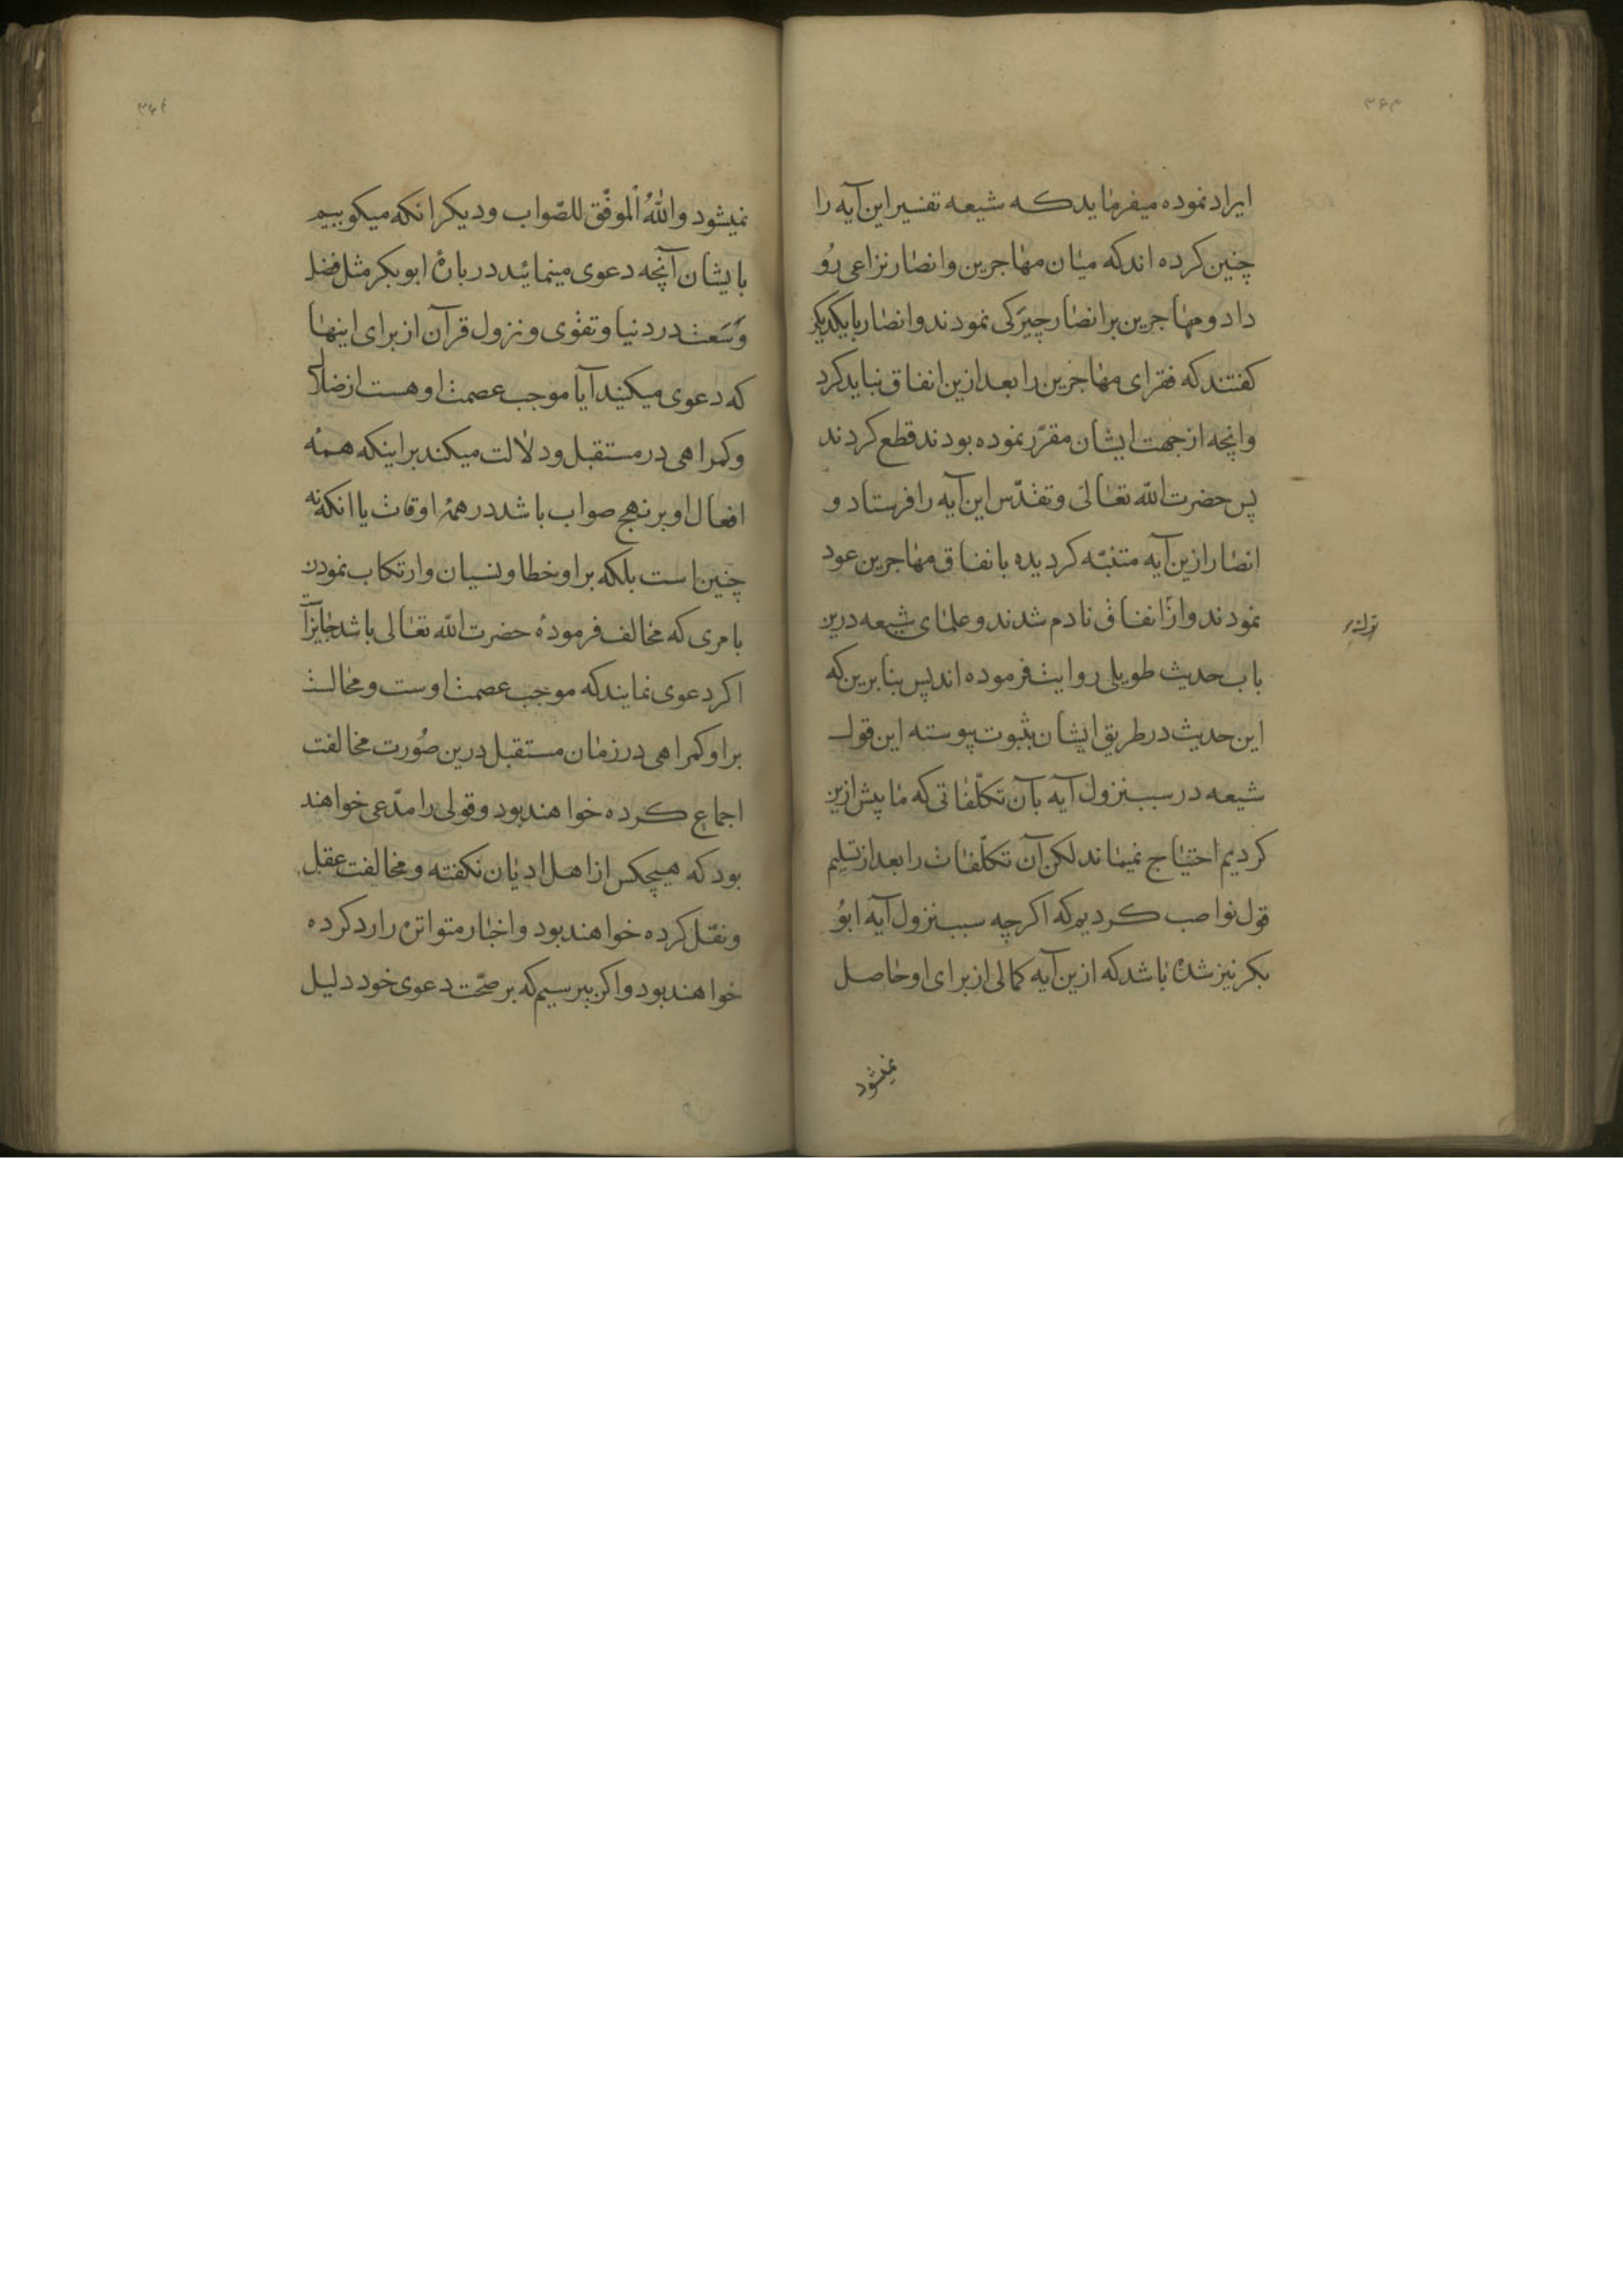 ۳۶۳
ایراد نموده میفرماید که شیعه تفسیر این آیه را
چنین کرده اند که میان مهاجرین و انصار نزاعی رو
داد و مهاجرین بر انصار چیرکی نمودند و انصار با یکدیکر
کفتند که فقرای مهاجرین را بعد ازین انفاق نباید کرد
و انچه از جهت ایشان مقرّر نموده بودند قطع کردند
پس حضرت اللّه تعالی و تقدّس این آیه را فرستاد و
انصار ازین آیه متنبّه کردیده بانفاق مهاجرین عود
نمودند و از انفاق نادم شدند و علمای شیعه درین
باب حدیث طویلی روایت فرموده اند پس بنا برین که
این حدیث در طریق ایشان بثبوت پیوسته این قول
شیعه در سبب نزول آیه بآن تکلّفاتی که ما پیش ازین
کردیم احتیاج نمیماند لکن آن تکلّفات را بعد از تسلیم
قول نواصب کردیم که اکرچه سبب نزول آیه ابو
بکر نیز شده باشد که ازین آیه کمالی از برای او حاصل
نمیشود
نمیشود واللّهُ الموفّق للصّواب و دیکر انکه میکوییم
بایشان آنچه دعوی مینمائید در بارهٔ ابوبکر مثل فضل
وَسَعت در دنیا و تقوی و نزول قرآن از برای اینها
که دعوی میکنید آیا موجب عصمت او هست از ضلال
و کمراهی در مستقبل و دلالت میکند بر اینکه همه
افعال او بر نهج صواب باشد در همهٔ اوقات یا انکه نه
چنین است بلکه بر او خطا و نسیان و ارتکاب نمودن
بامری که مخالف فرمودهٔ حضرت اللّه تعالی باشد جایز است
اکر دعوی نمایند که موجب عصمت اوست و محالست
بر او کمراهی در زمان مستقبل درین صُورت مخالفت
اجماع کرده خواهند بود و قولی را مدّعی خواهند
بود که هیچکس از اهل ادیان نکفته و مخالفت عقل
و نقل کرده خواهند بود و اخبار متواتره را رد کرده
خواهند بود و اکر بپرسیم که بر صحّت دعوی خود دلیل